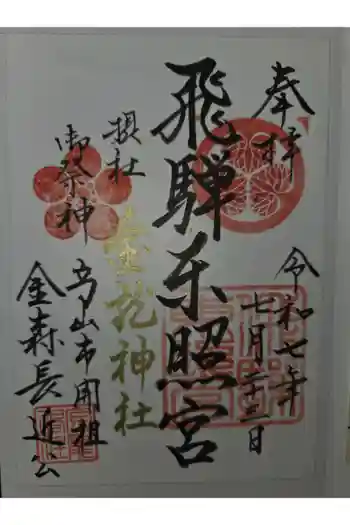 奉拝
令和七年
七月二十三日
飛騨东照宮
摂社
金龍神社
御祭神
高山市開祖
金森長近公